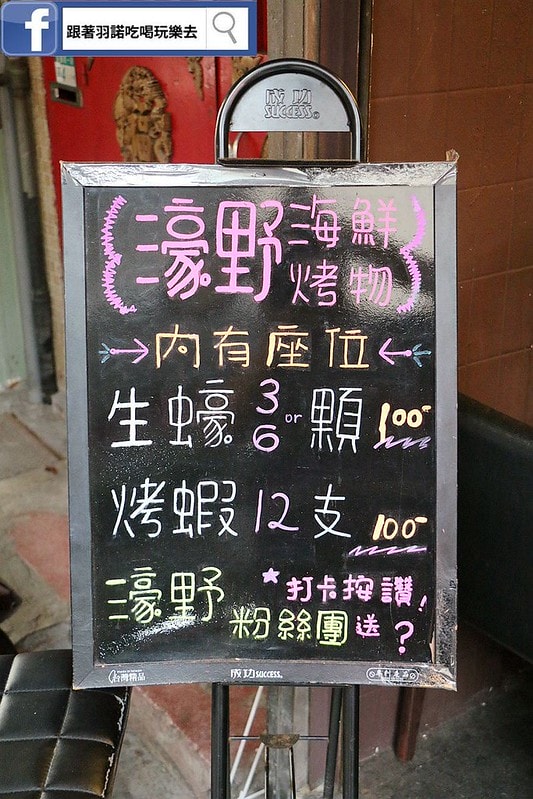 跟著羽諾吃喝玩樂去
成功
SUCCESS®
濠野 海鮮
烤物
內有座位
生蠔 3 or 6 顆 100-
烤蝦 12 支 100-
濠野 ★打卡按讚!
粉絲團送?
台灣精品 成功 SUCCESS®